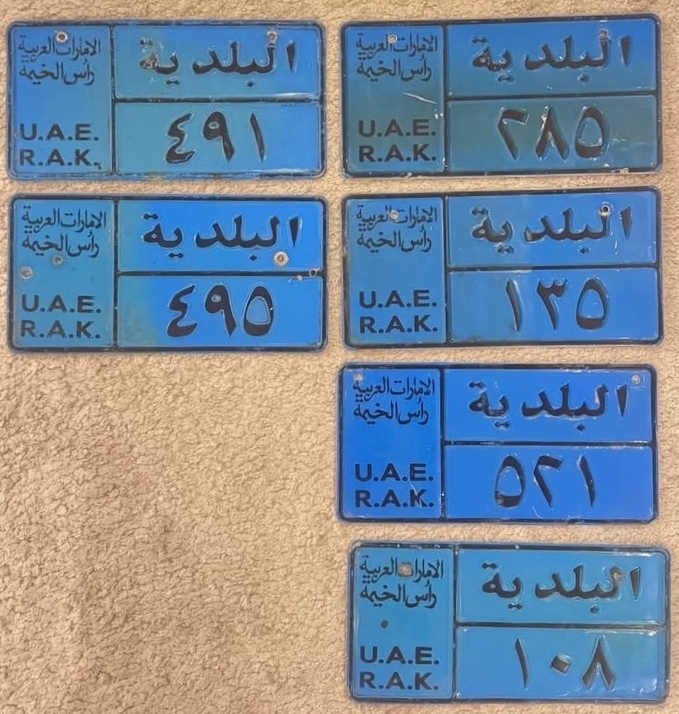 الامارات العربية
رأس الخيمة
البلدية
U.A.E.
R.A.K.
٤٩١
الامارات العربية
رأس الخيمة
البلدية
U.A.E.
R.A.K.
٢٨٥
الامارات العربية
رأس الخيمة
البلدية
U.A.E.
R.A.K.
٤٩٥
الامارات العربية
رأس الخيمة
البلدية
U.A.E.
R.A.K.
١٣٥
الامارات العربية
رأس الخيمة
البلدية
U.A.E.
R.A.K.
٥٢١
الامارات العربية
رأس الخيمة
البلدية
U.A.E.
R.A.K.
١٠٨